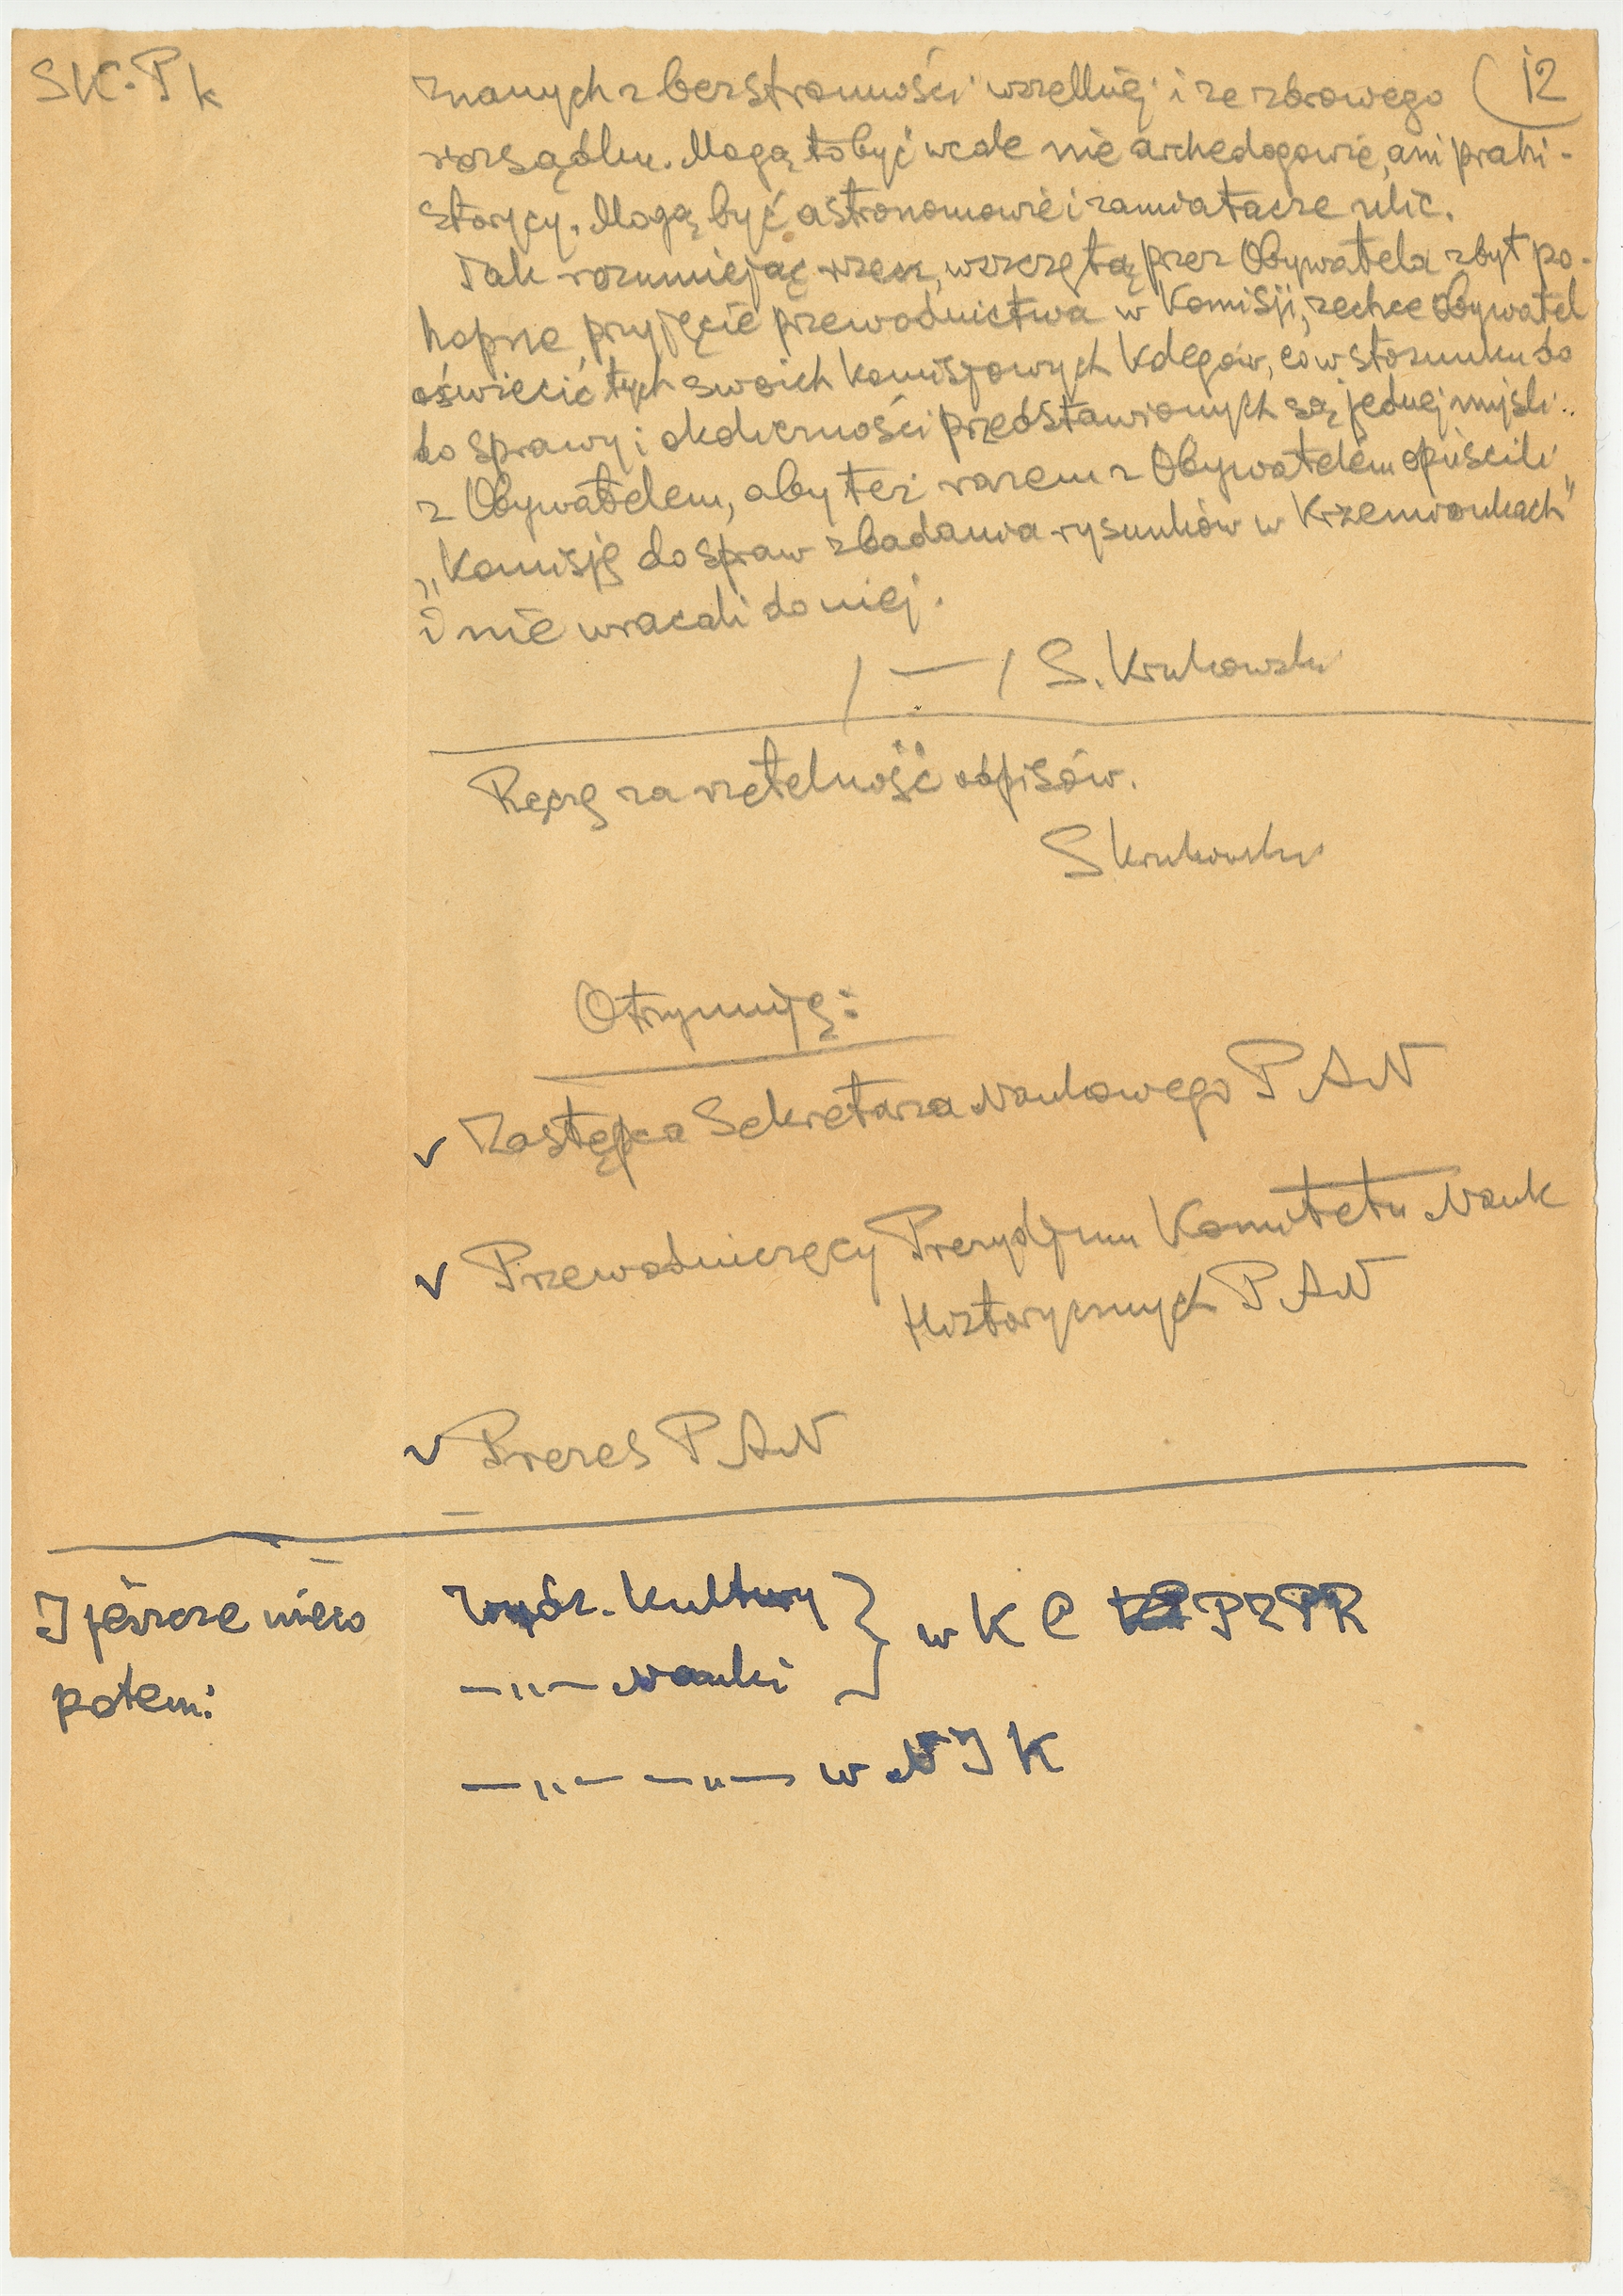 SK. Pk
12
znanych z bezstronności wszelkiej i ze zdrowego
rozsądku. Mogą to być wcale nie archeologowie, ani prahi-
storycy. Mogą być astronomowie i zamiatacze ulic.
Tak rozumiejąc rzecz, wszczętą przez Obywatela zbyt po-
hopne przyjęcie przewodnictwa w Komisji, zechce Obywatel
oświecić tych swoich komisyjowych Kolegów, co w stosunku do
do sprawy i okoliczności przedstawionych są jednej myśli
z Obywatelem, aby też razem z Obywatelem opuścili
„Komisję do spraw zbadania rysunków w Krzemionkach"
i nie wracali do niej.
/—/ S. Krukowski
Ręczę za rzetelność odpisów.
SKrukowski
Otrzymują:
✓ Zastępca Sekretarza Naukowego PAN
✓ Przewodniczący Prezydjum Komitetu Nauk
Historycznych PAN
✓ Prezes PAN
I jeszcze nieco
potem:
Wydz. Kultury } w KC PZPR
—„— Nauki
—„— —„— w NIK